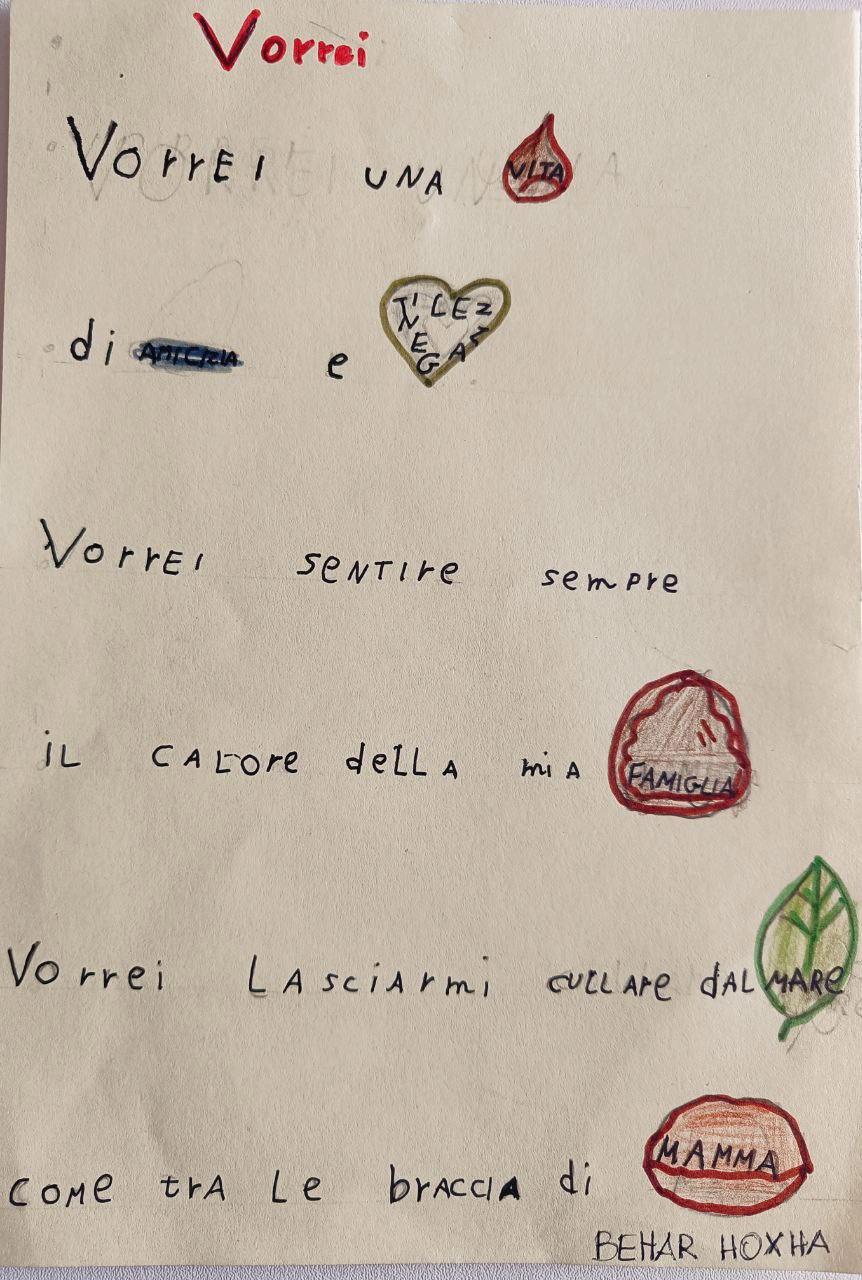 Vorrei
VorrEI UNA VITA
di AMICIZIA e GENTILEZZA
VorrEI seNTIre semPre
iL CALore deLLA miA FAMIGLIA
Vorrei LAsciArmi cULLAre dAL MARe
COMe trA Le brACCIA di MAMMA
BEHAR HOXHA